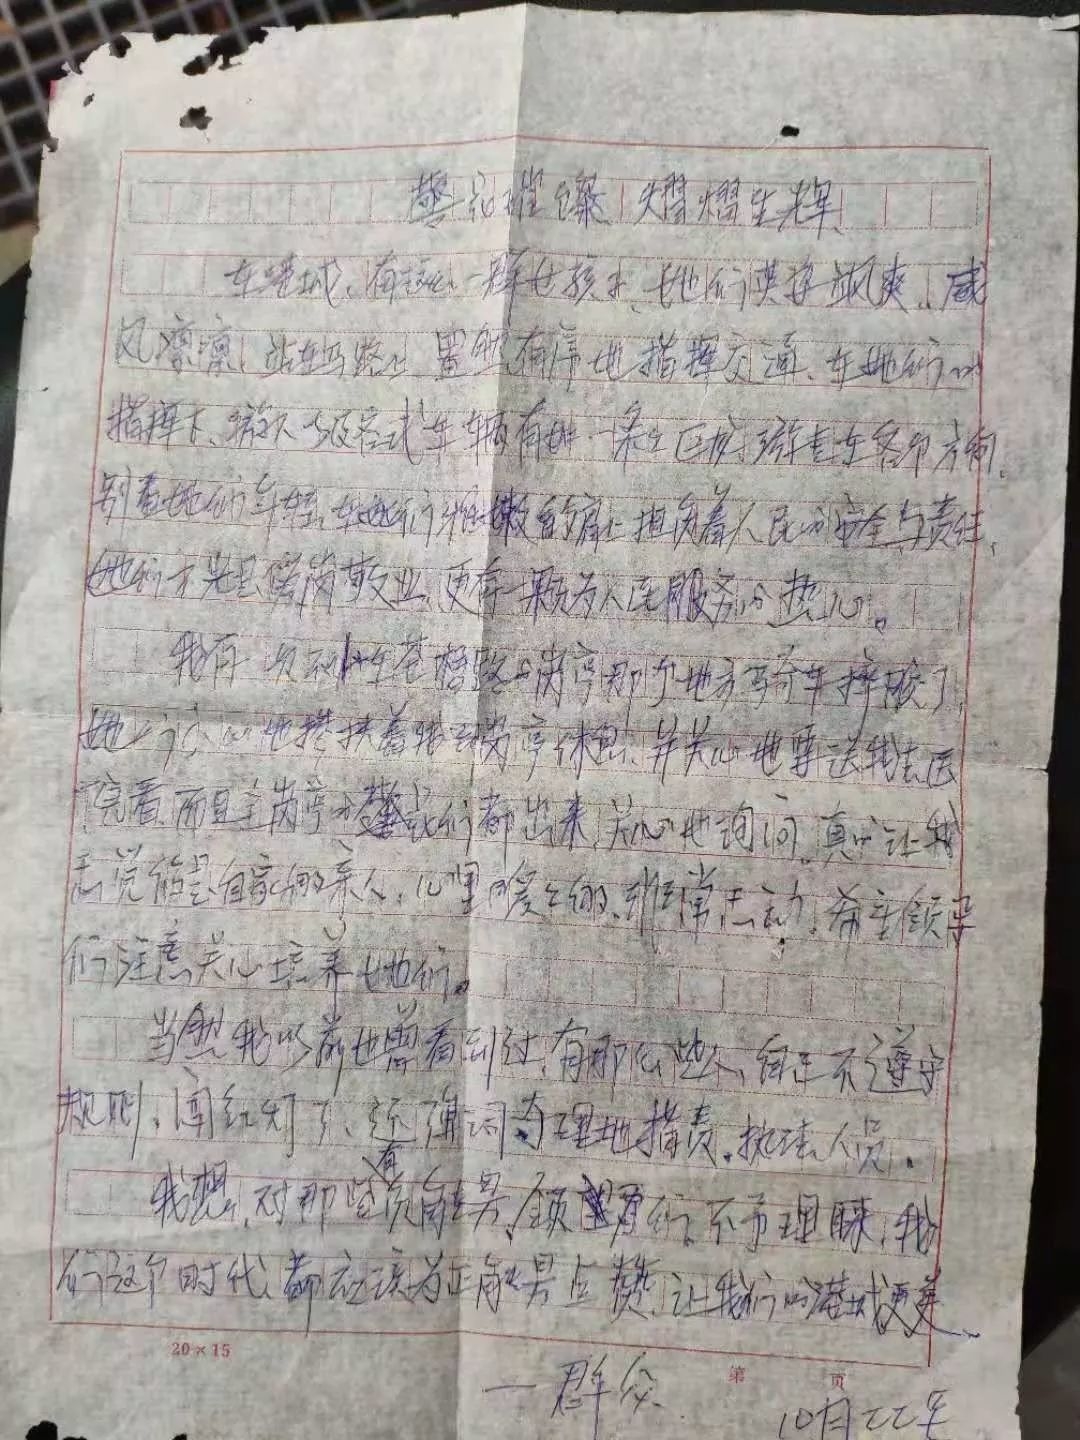 警花璀璨、熠熠生辉、
在港城、有这么一群女孩子、她们英姿飒爽、威
风凛凛、站在马路上 置然有序地指挥交通、在她们的
指挥下、各式车辆有
别看她们年轻、在她们稚嫩的肩上担负着人民的安全与责任、
她们不光是爱岗敬业、更有一颗为人民服务的热心。
我有一次在苍梧路的岗亭那个地方骑车摔跤了、
她们小心地搀扶着我到岗亭休息、并关心地要送我去医
院看、而且全岗亭的警员们都出来、关心地询问、真的让我
感觉像是自家的亲人、心里暖之、非常感动、希望领导
们注意关心培养她们。
当然我以前也曾看到过、有那么些人、自己不遵守
规则、闯红灯了、还强词夺理地指责、执法人员、
我想、对那些有负能量、领导们、不予理睬、我
们这个时代、都应该为正能量点赞、让我们的港城更美、
20×15
第 页
一群众、
10月22号